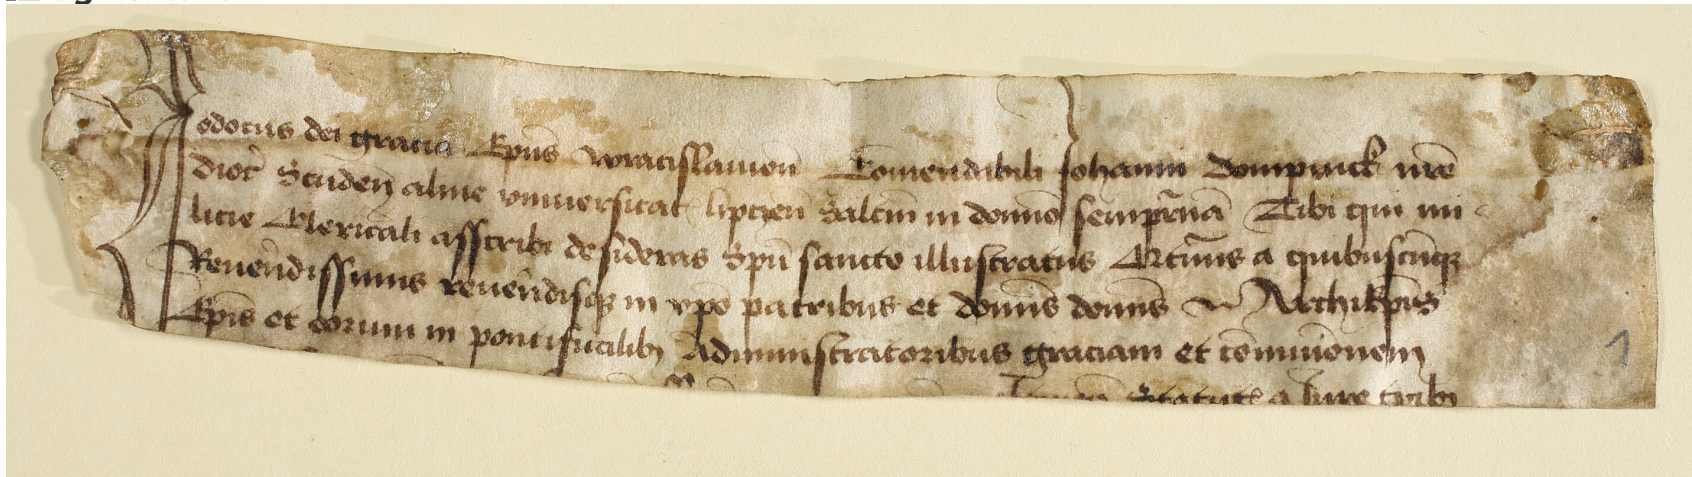 Jodocus dei gratia Ep̄us wratislauieñ Com̄endabili Johanni Dompnick nr̄e
dioc̄ Studeñ alme vniuersitat lipczeñ Salt̄m in domino sempit̄nā Tibi qui mi
litie Clericali asscribi desideras Sp̄u sancto illustratus Qt̄nus a quibuscūqꝫ
Reuerēdissimis reuerēdisqꝫ in xp̄o patribus et domīs domīs Archiep̄is
Ep̄is et eorum in pontificalibꝫ Administratoribus graciam et com̄unionem
Statut a Iure
1